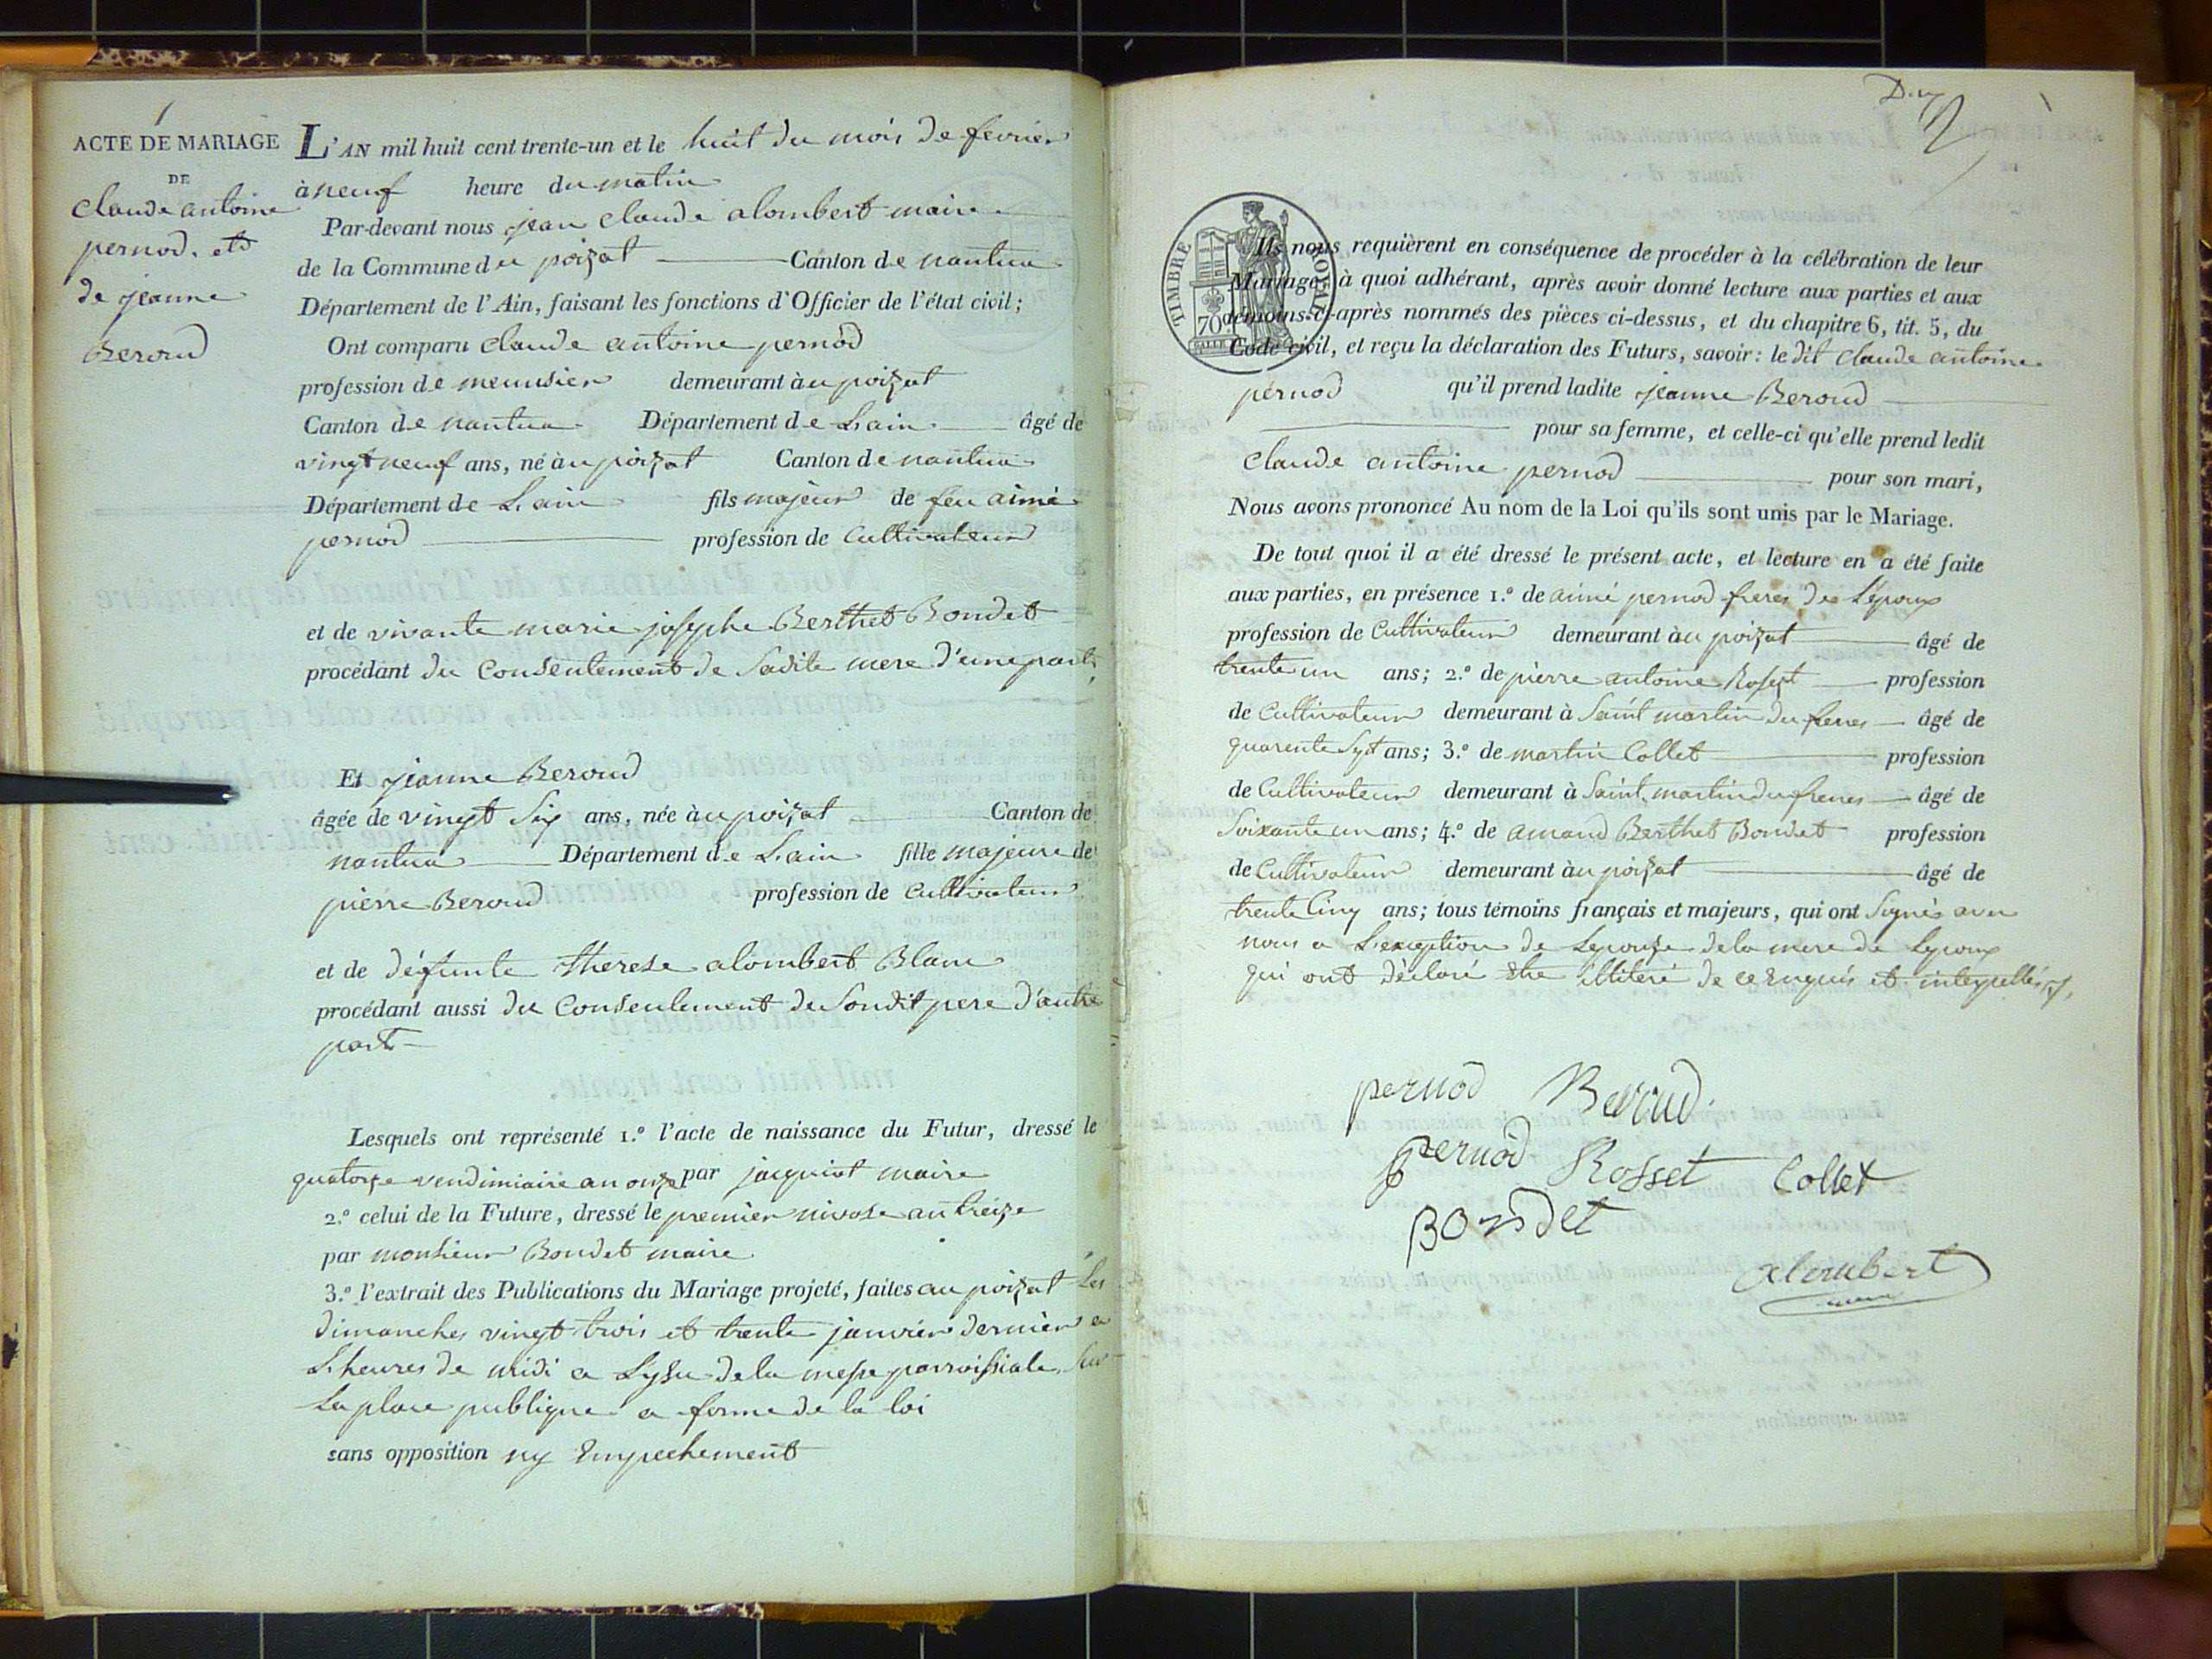 1
ACTE DE MARIAGE
DE
claude antoine
pernod. et
de jeanne
Beroud
L'AN mil huit cent trente-un et le huit du mois de fevrier
à neuf heure du matin
Par-devant nous jean claude alombert maire
de la Commune du poizat Canton de nantua
Département de l'Ain, faisant les fonctions d'Officier de l'état civil;
Ont comparu claude antoine pernod
profession de meunsier demeurant à u poizat
Canton de nantua Département de L'ain âgé de
vingt neuf ans, né à u poizat Canton de nantua
Département de L'ain fils majeur de feu aimé
pernod profession de Cultivateur
et de vivante marie josephe Berthet Bondet
procédant du Consentement de Sadite mere d'une part,
Et jeanne Beroud
âgée de vingt Six ans, née à u poizat Canton de
nantua Département de L'ain fille majeure de
pierre Beroud profession de Cultivateur
et de défunte therese alombert Blanc
procédant aussi du Consentement de Sondit pere d'autre
part
Lesquels ont représenté 1.º l'acte de naissance du Futur, dressé le
quatorze vendimiaire an onze par jacquiot maire
2.º celui de la Future, dressé le premier nivose an treize
par monsieur Bondet maire
3.º l'extrait des Publications du Mariage projeté, faites au poizat Les
dimanches vingt trois et trente janvier dernier a
L'heures de midi a Lysu de la messe parroissiale Sur
La place publique a forme de la loi
sans opposition ny Empechement
TIMBRE ROYAL
70
Ils nous requièrent en conséquence de procéder à la célébration de leur
Mariage; à quoi adhérant, après avoir donné lecture aux parties et aux
témoins ci-après nommés des pièces ci-dessus, et du chapitre 6, tit. 5, du
Code civil, et reçu la déclaration des Futurs, savoir: le dit claude antoine
pernod qu'il prend ladite jeanne Beroud
pour sa femme, et celle-ci qu'elle prend ledit
claude antoine pernod pour son mari,
Nous avons prononcé Au nom de la Loi qu'ils sont unis par le Mariage.
De tout quoi il a été dressé le présent acte, et lecture en a été faite
aux parties, en présence 1.º de aimé pernod freres de L'époux
profession de Cultivateur demeurant à u poizat âgé de
trente un ans; 2.º de pierre antoine Rosset profession
de Cultivateur demeurant à Saint martin du frenes âgé de
quarente Sept ans; 3.º de martin Collet profession
de Cultivateur demeurant à Saint martin du frenes âgé de
Soixante un ans; 4.º de amand Berthet Bondet profession
de Cultivateur demeurant à u poizat âgé de
trente Cinq ans; tous témoins français et majeurs, qui ont Signés avec
nous a L'exeption de Lepouse de la mere de Lepoux
qui ont déclaré Etre illiteré de ce requis et interpellés
pernod Beroud
pernod Rosset Collet
Bondet
alombert